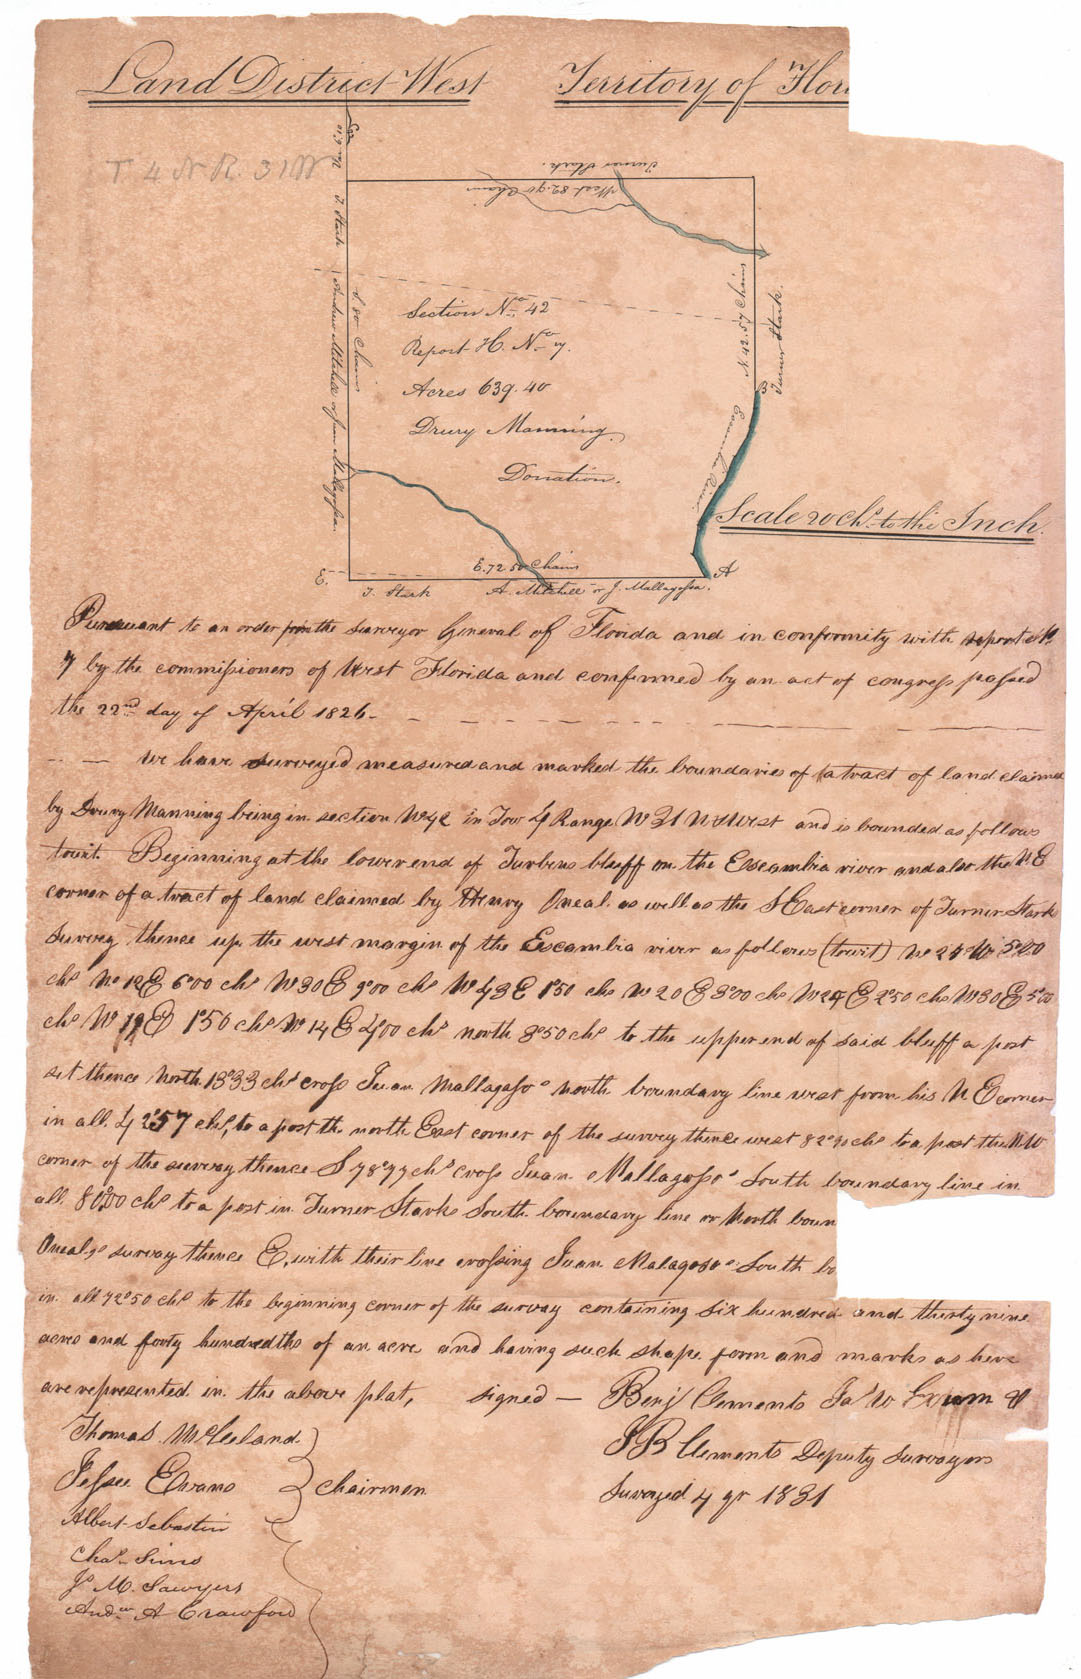 Land District West Territory of Flor
T 4 N R. 31 W
Turner Stark.
West 82.90 Chains
T. Stark
Andrew Mitchell or Juan Mallagosa.
S. 80 Chains
N 42.57 Chains
Turner Stark.
Section No. 42
Report H. No 7.
Acres 639.40
Drury Manning.
Donation.
B
Escambia River
Scale 20 Chs to the Inch.
E. 72.50 Chains
A
E.
T. Stark A. Mitchell or J. Mallagosa.
Pursuant to an order from the surveyor General of Florida and in conformity with report No
7 by the commissioners of West Florida and confirmed by an act of congress passed
the 22nd day of April 1826 -
We have surveyed measured and marked the boundaries of a tract of land claimed
by Drury Manning being in section No 42 in Tow 4 Range No 31 N & West and is bounded as follows
towit. Beginning at the lower end of Turbens bluff on the Escambia river and also the N E
corner of a tract of land claimed by Henry Oneal as well as the S East corner of Turner Stark
survey thence up the west margin of the Escambia river as follows (towit)
chs No 12 E 6.00 chs N 30 E 9.00 chs N 43 E 1.50 chs N 20 E 3.00 chs N 24 E 2.50 chs N 30 E 5.00
chs N 19 E 1.50 chs N 14 E 4.00 chs north 3.50 chs to the upper end of said bluff a post
set thence North 13.33 chs cross Juan Mallagaso's north boundary line west from his N E corner
in all 42.57 chs, to a post the north East corner of the survey thence west 82.90 chs to a post the N W
corner of the survey thence S 78.77 chs cross Juan Mallagoso's South boundary line in
all 80.00 chs to a post in Turner Starks South boundary line or North boun
Oneal's survay thence E, with their line crossing Juan Malagoso's South bo
in all 72.50 chs to the beginning corner of the survay containing six hundred and thirty nine
acres and forty hundredths of an acre and having such shape form and marks as here
are represented in the above plat, signed — Benj Clements Jas W Exum &
Thomas McCleland
J B Clements Deputy Surveyors
Jessee Evans chairmen
Surveyed 4 qr 1831
Albert Sebastin
Chas Sims
Js M. Sawyers
Andw A Crawford